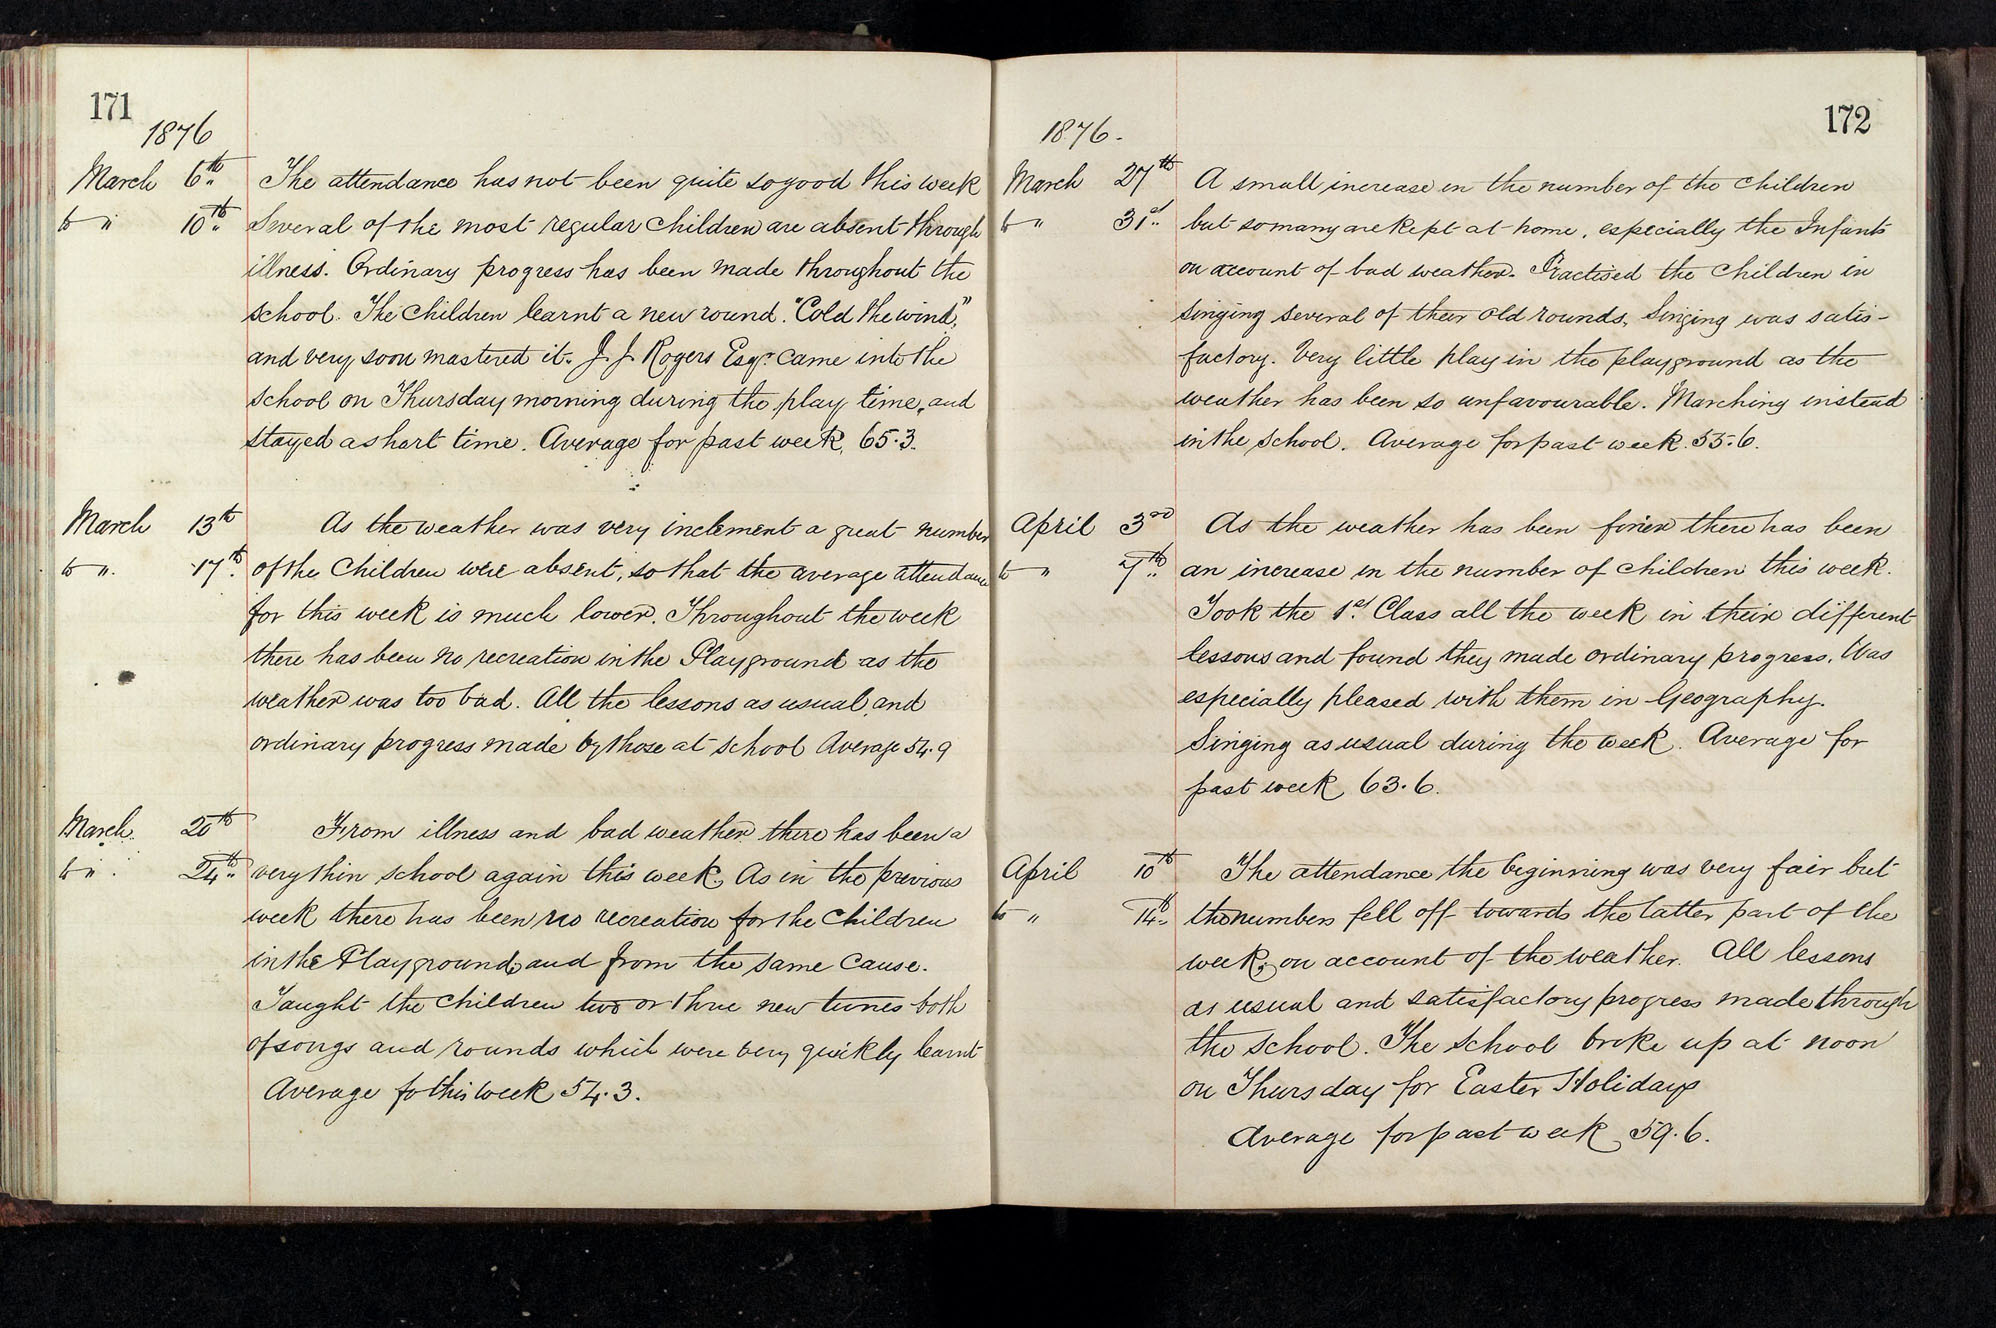 171
1876
March 6th The attendance has not been quite so good this week
to " 10th Several of the most regular children are absent through
illness. Ordinary progress has been made throughout the
school. The Children learnt a new round. "Cold the wind,"
and very soon mastered it. J. J. Rogers Esqr. came into the
school on Thursday morning during the play time, and
stayed a short time. Average for past week, 65.3.
March 13th As the weather was very inclement a great number
to ". 17th. of the Children were absent, so that the average attendance
for this week is much lower. Throughout the week
there has been no recreation in the Playground as the
weather was too bad. All the lessons as usual, and
ordinary progress made by those at school Average 54.9
March. 20th From illness and bad weather there has been a
to ". 24th very thin school again this week. As in the previous
week there has been no recreation for the Children
in the Playground, and from the same cause.
Taught the Children two or three new tunes both
of songs and rounds which were very quickly learnt
Average fo this week 54.3.
172
1876.
March 27th A small increase in the number of the Children
to " 31st. but so many are kept at home, especially the Infants
on account of bad weather. Practised the Children in
singing several of their old rounds, Singing was satis-
factory. Very little play in the playground as the
weather has been so unfavourable. Marching instead
in the school. Average for past week. 55.6.
April 3rd As the weather has been finer there has been
to " 7th an increase in the number of children this week.
Took the 1st. Class all the week in their different
lessons and found they made ordinary progress. Was
especially pleased with them in Geography.
Singing as usual during the week. Average for
past week 63.6.
April 10th The attendance the beginning was very fair but
to " 14th. the numbers fell off towards the latter part of the
week, on account of the weather. All lessons
as usual and satisfactory progress made through
the school. The school broke up at noon
on Thursday for Easter Holidays
Average for past week 59.6.